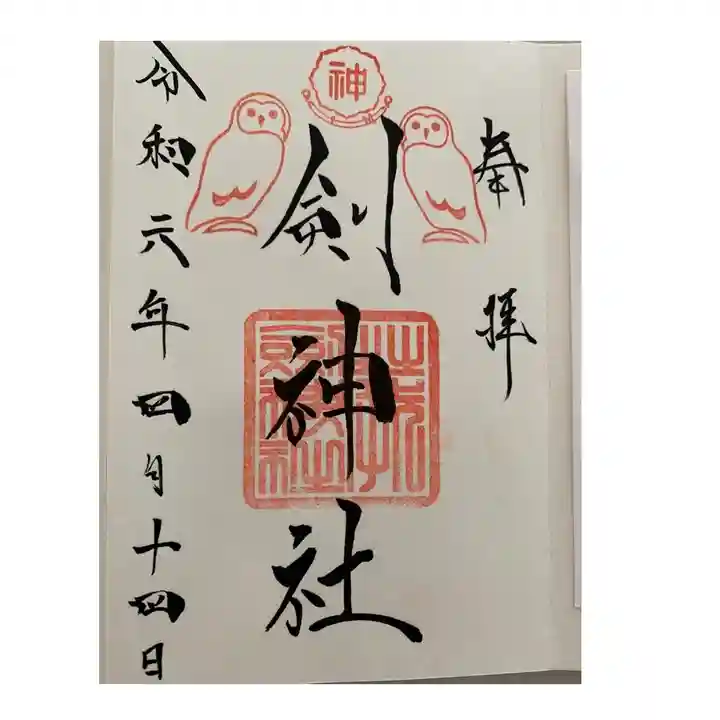 奉拝
神
剣神社
令和六年四月十四日